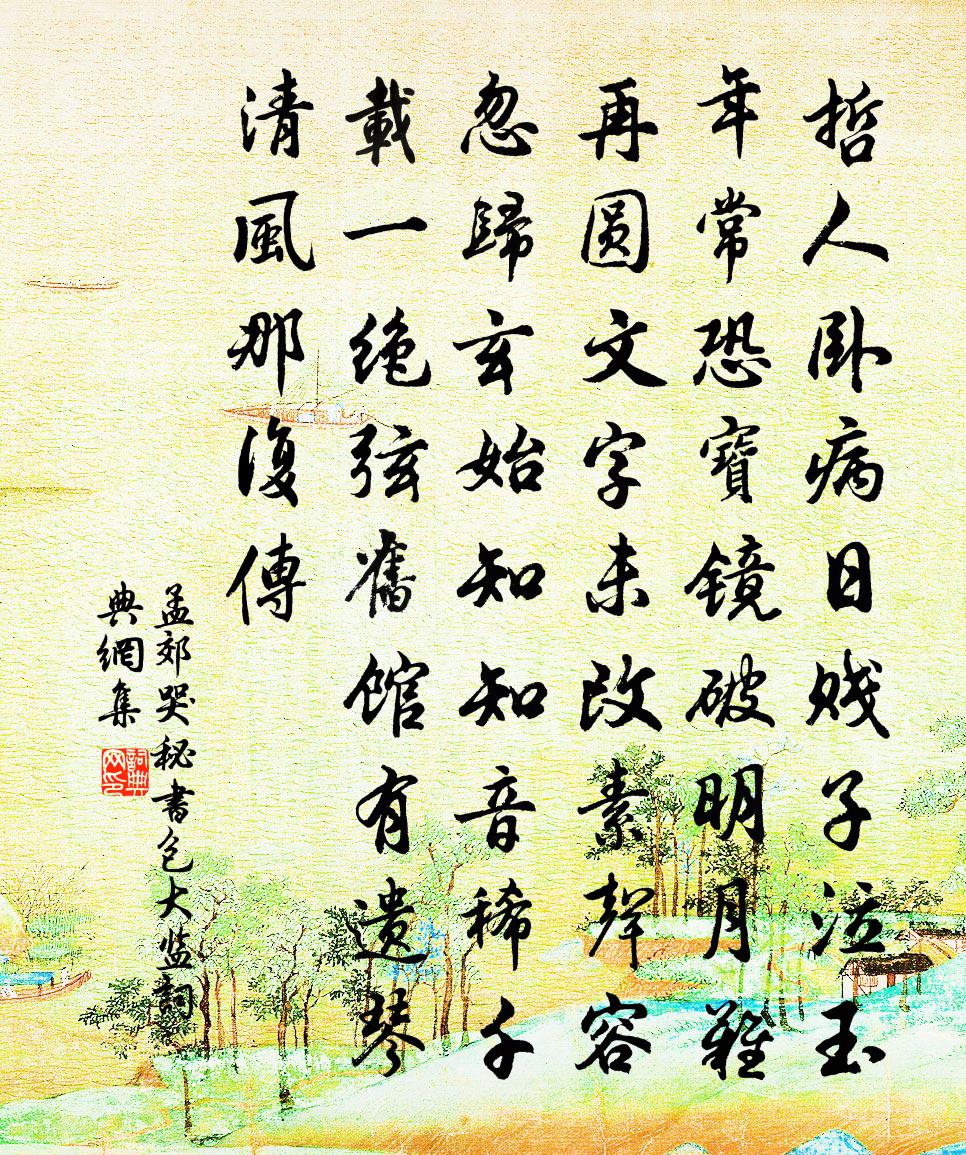 哲人卧病日賤子泣玉
年常恐寶鏡破明月難
再圆文字未改素聲容
忽歸玄始知知音稀千
載一绝弦舊館有遗琴
清風那復傳
孟郊哭秘書包大监詞
典網集
詞典网印